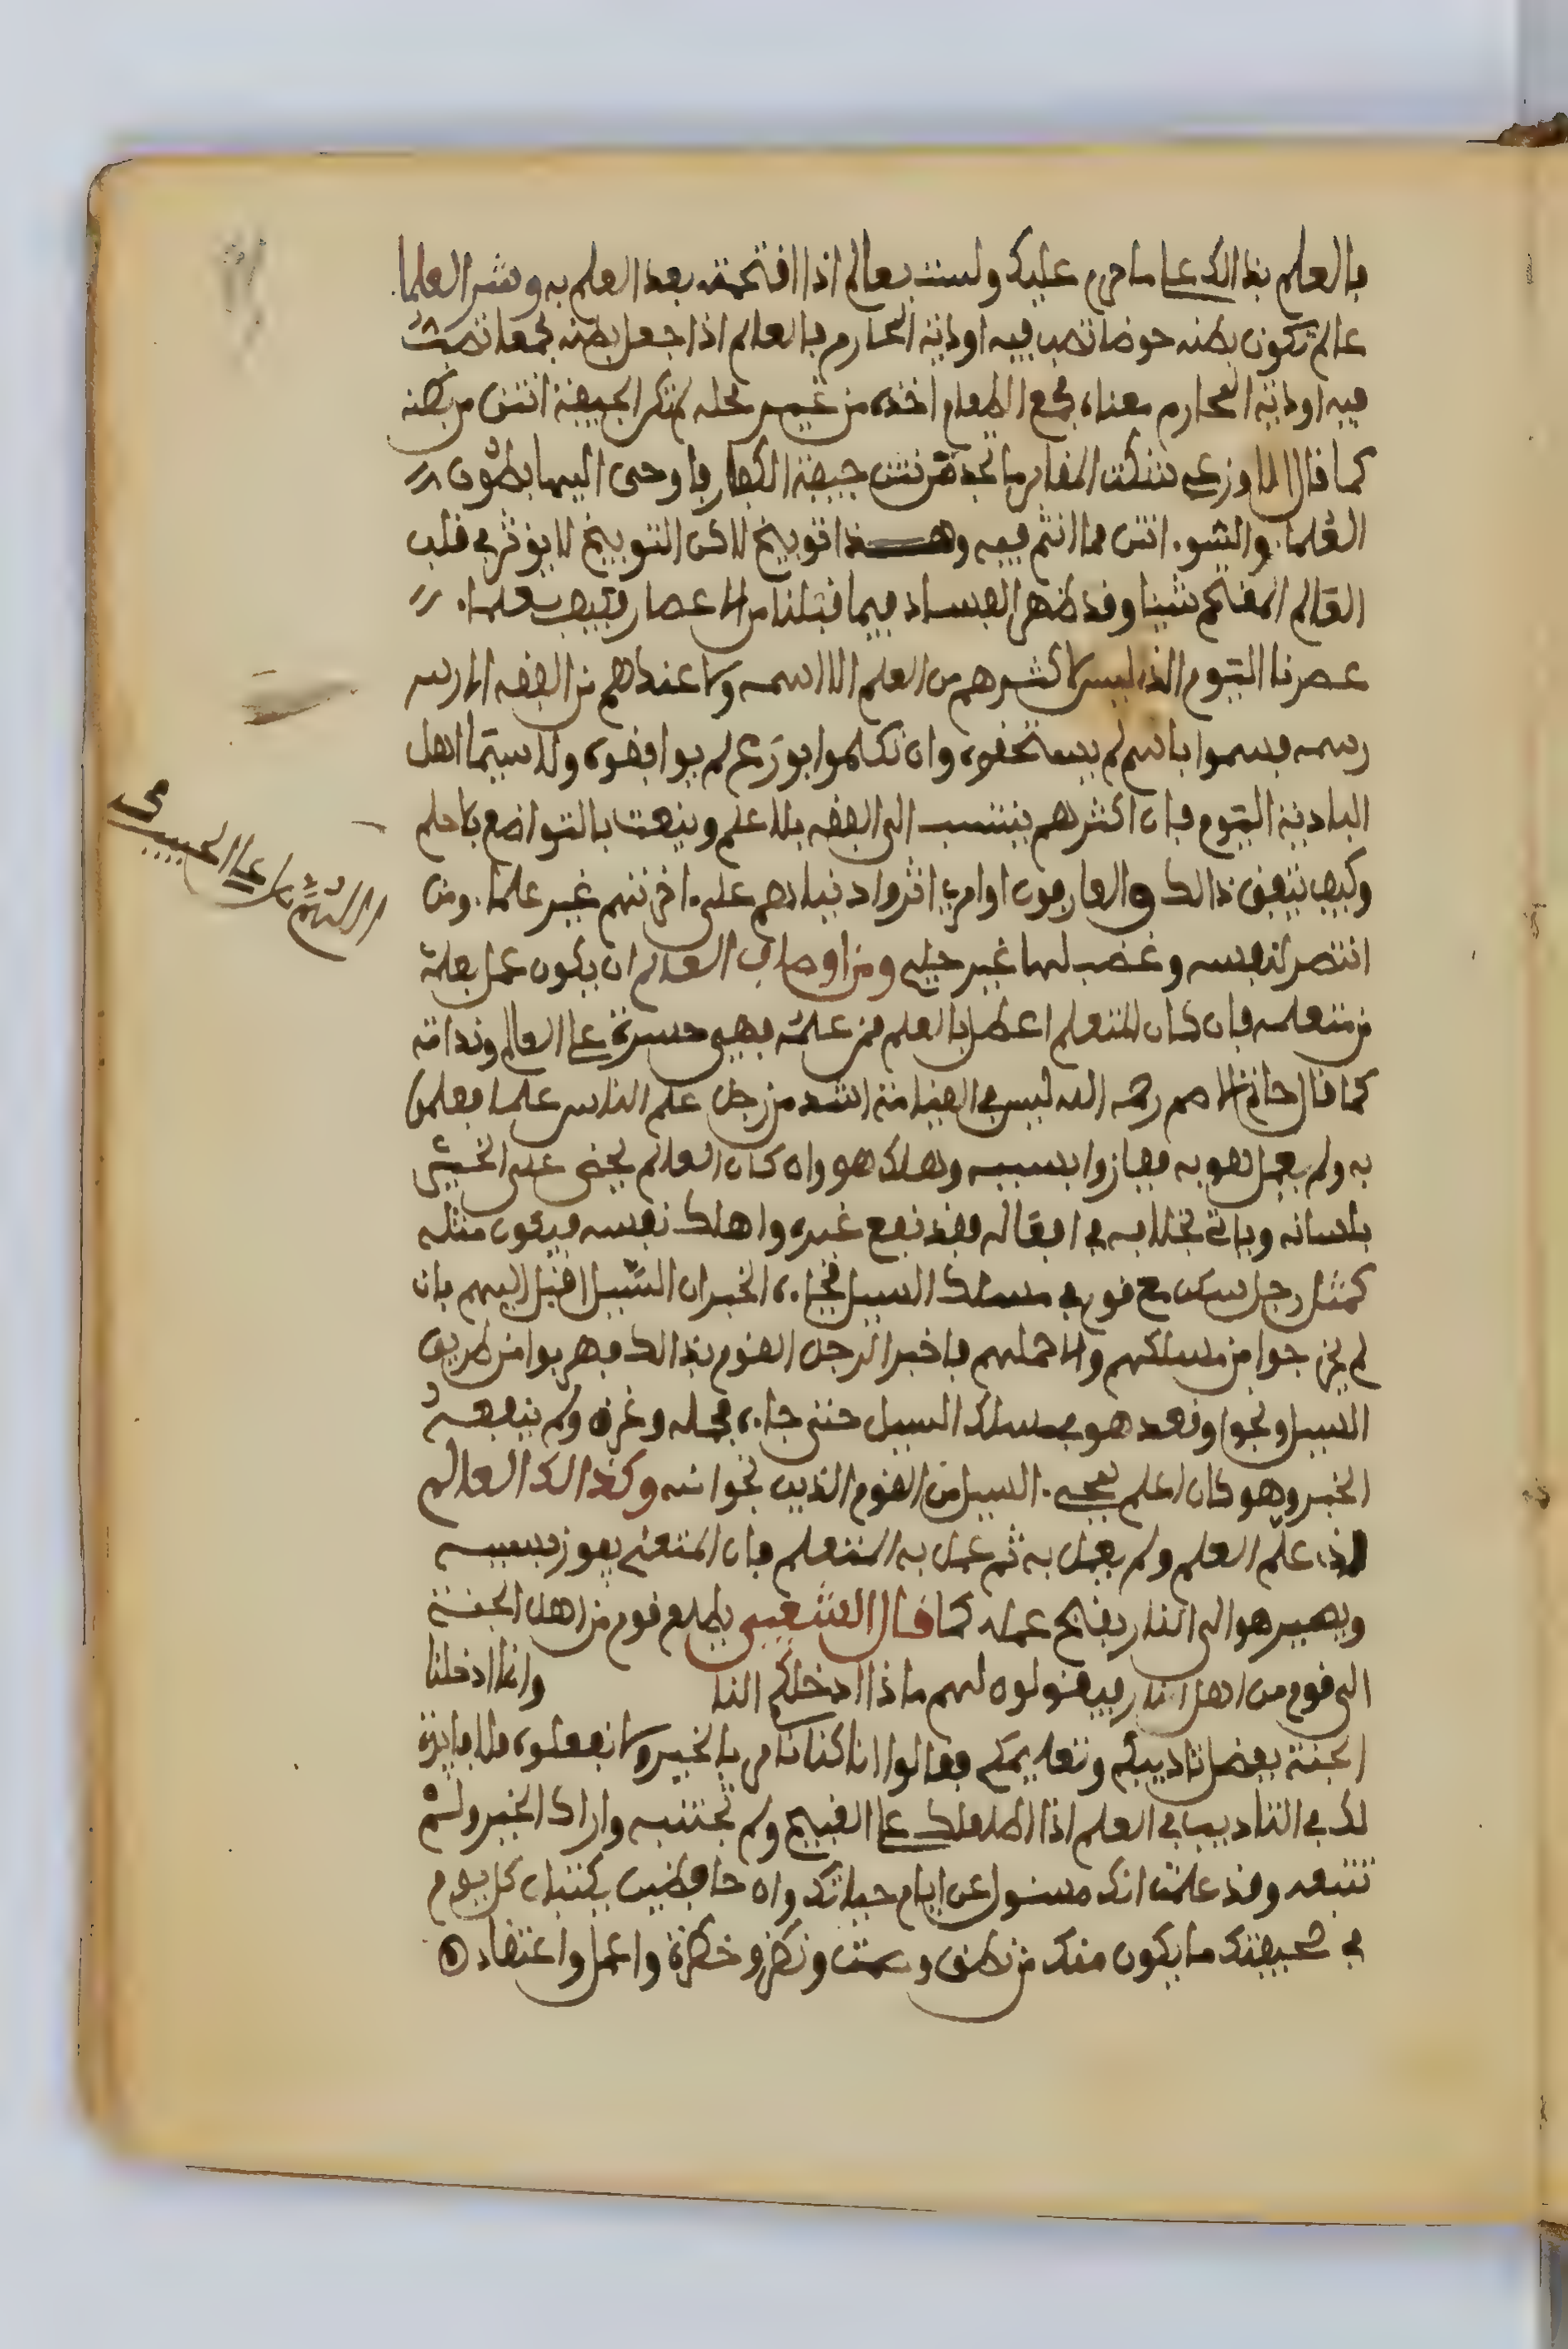 بالعلم بذالك على ما حرم عليك ولست بعالم اذا افتحمته بعد العلم به وشر العلما
عالم تكون بطنه حوضا تصب فيه اودية المحارم بالعالم اذا جعل بطنه مجمعا تصب
فيه اودية المحارم معناه يجمع الطعام اخذه من غير محله لم تكن الجيفة انتن من بطنه
كما قال الاوزعي شكت المقابر ما تجد من نتن جيفة الكفار فاوحى اليها بطون
العلماء والسوء انتن مما انتم فيه وهذا توبيخ لاكن التوبيخ لا يوثر في قلب
العالم شيئا وقد ظهر الفساد فيما قبلنا من الاعصار فكيف بعلماء
عصرنا اليوم الذ ليس لاكثرهم من العلم الا اسمه ولا عندهم من الفقه الا رسم
رسمه فسموا باسم لم يستحقوه وان تكلموا بورع لم يوافقوه ولا سيما اهل
البادية اليوم فان اكثرهم ينتسب الى الفقه بلا علم وينعت بالتواضع بلا حلم
وكيف يتفق ذالك والعارفون اثروا دنياهم على اخرتهم غير علماء ومن
انتصر لنفسه وغضب لها غير حليم ومن اوصاف العالم ان يكون عمل بعلمه
من متعلمه فان كان المتعلم اعمل بالعلم ممن علمه فهي حسرة على العالم وندامة
كما قال حاتم الاصم رحمه الله ليس في القيامة اشد من رجل علم الناس علما فعملوا
به ولم يعمل هو به ففازوا بسببه وهلك هو وان كان العالم يحض على الخير
بلسانه وياتي بخلافه في افعاله فقد نفع غيره واهلك نفسه فيكون مثله
كمثل رجل سكن مع قوم في مسلك السيل فجاءه الخبر ان السيل اقبل اليهم فان
لم يخرجوا من مسلكهم والا حملهم فاخبر الرجل القوم بذالك فهربوا من طريق
السيل ونجوا وقعد هو في مسلك السيل حتى جاءه فحمله وغرق ولم ينفعه
الخبر وهو كان اعلم بمجيء السيل من القوم الذين نجوا منه وكذالك العالم
اذا علم العلم ولم يعمل به ثم عمل به المتعلم فان المتعلم يفوز بسببه
ويصير هو الى النار بقبح عمله كما قال الشعبي يطلع قوم من اهل الجنة
الى قوم من اهل النار فيقولون لهم ماذا ادخلكم النا وانما ادخلنا
الجنة بفضل تاديبكم وتعليمكم فقالوا انا كنا نامر بالخير ولا نفعله فلا فايدة
لك في التاديب في العلم اذا اطلعك على القبيح ولم تجتنبه واراك الخير ولم
تتبعه وقد علمت انك مسئول عن ايام حياتك وان حافظين يكتبان كل يوم
في صحيفتك ما يكون منك من نطق وصمت ونظر وخطرة واعمل واعتقاد
اللهم صل على الحبيب محمد